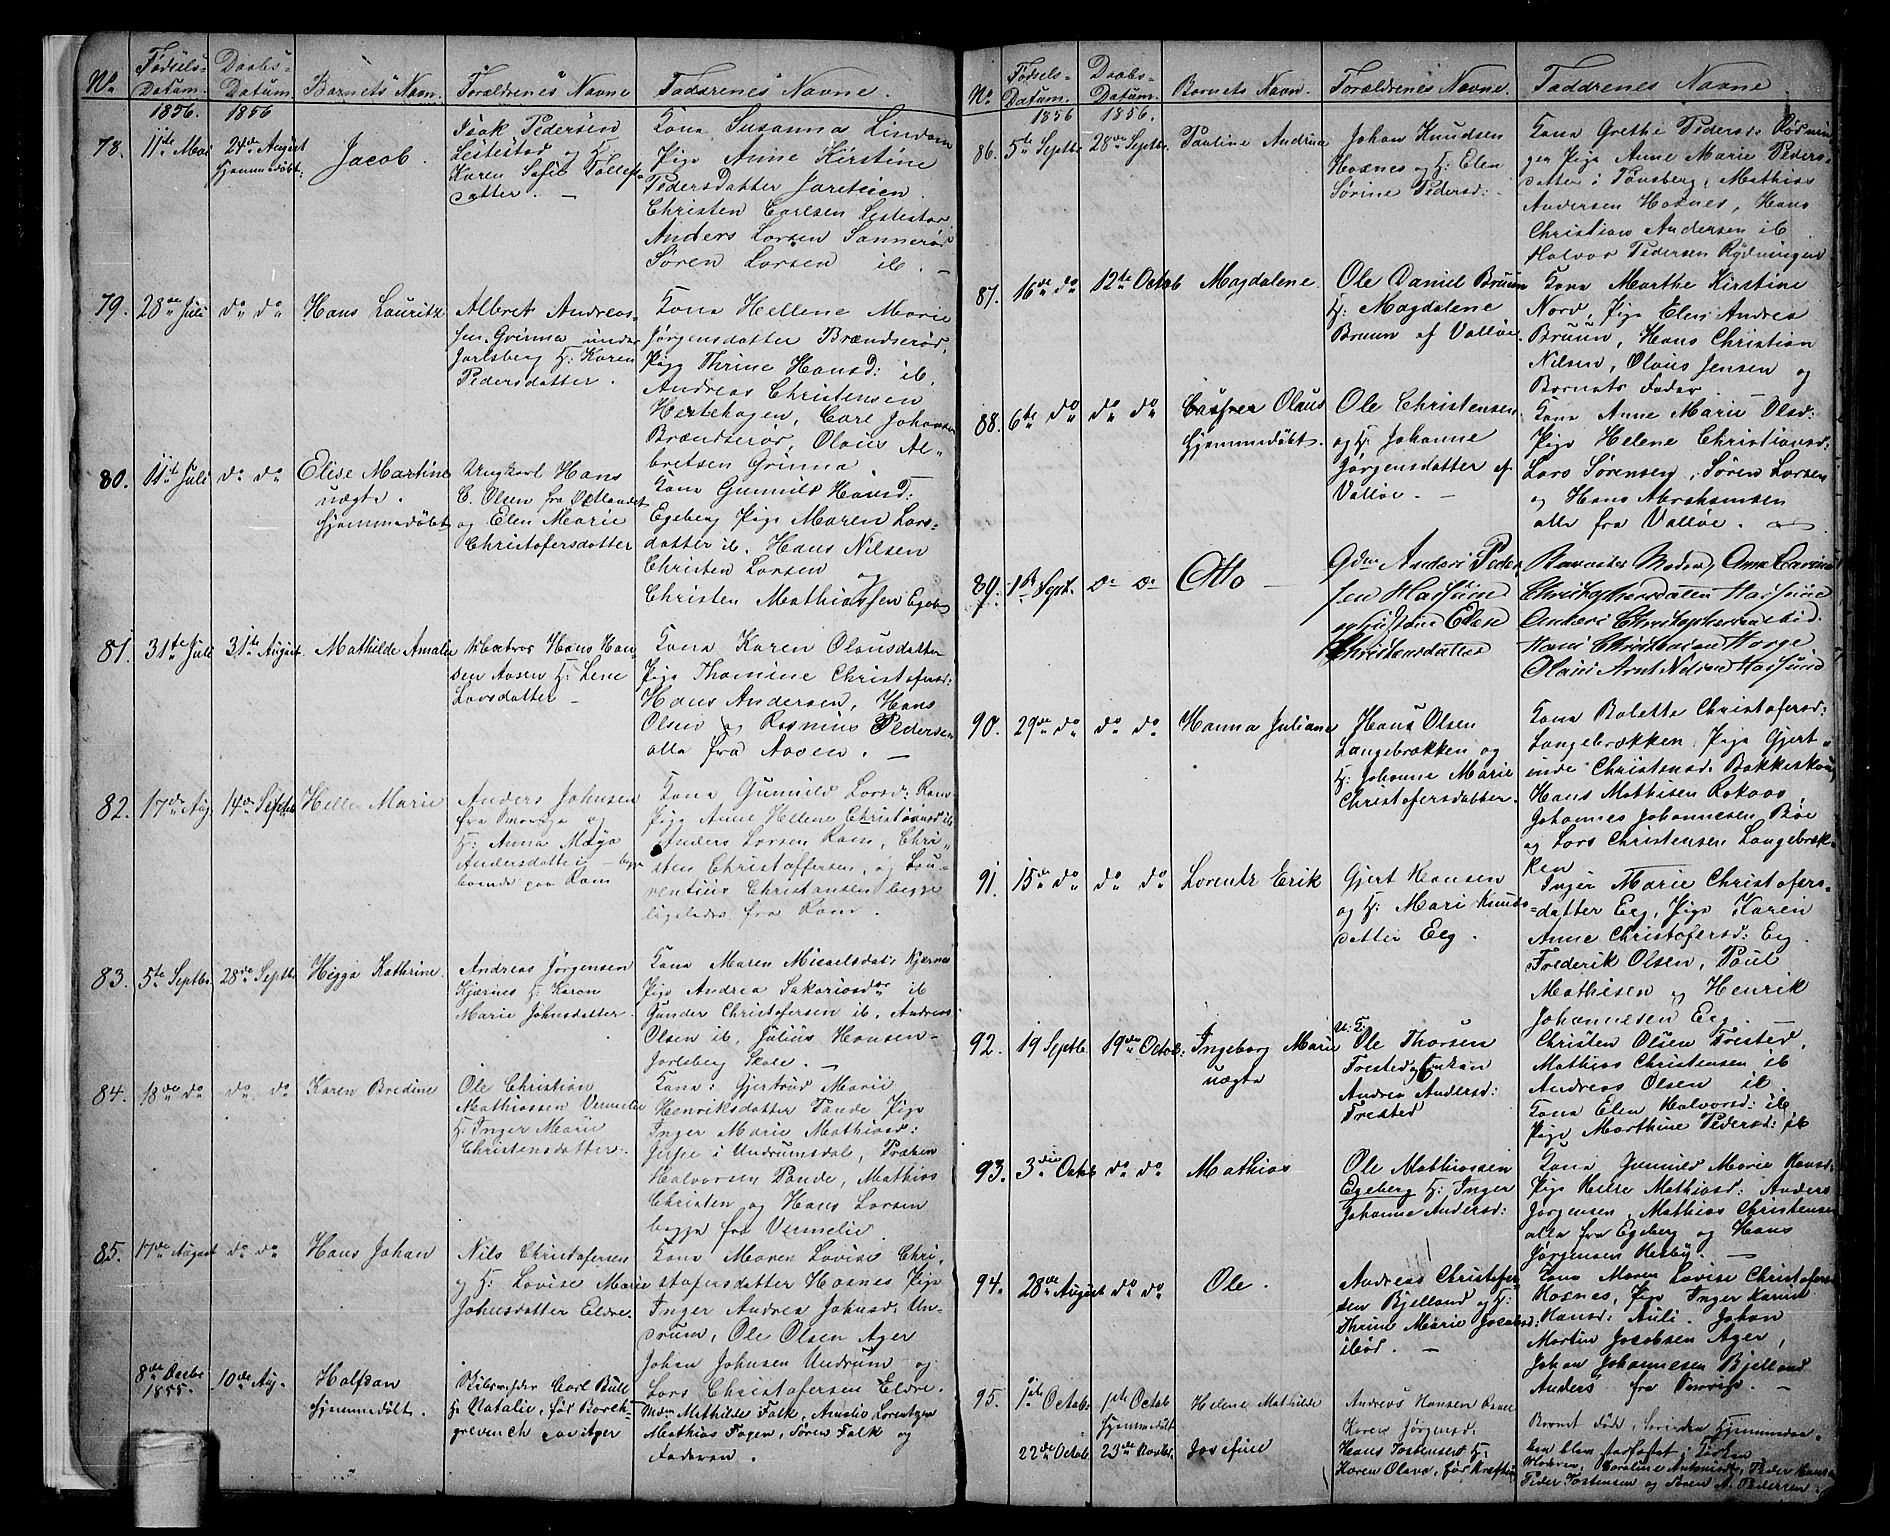 No. Fødsels-Datum. Daabs-Datum. Barnets Navn. Forældrenes Navne Faddrenes Navne.
1856. 1856
78. 11te Mai 24de August Hjemmedøbt. Jacob.
Isak Pedersen
Lestestad og H:
Karen Sofie Tollefs-
datter. —
Kona Susanna Lindom
Pige Anne Kirstine
Pedersdatter Jarteien
Christen Carlsen Lestestad
Anders Larsen Sannerød
Søren Larsen ib. —
79. 28de Juli do do Hans Lauritz
Albret Andreas-
sen Grinna under
Jarlsberg H: Karen
Pedersdatter.
Kona Hellene Marie
Jørgensdatter Brændserød,
Pige Thrine Hansd: ib.
Andreas Christensen
Hertehagen, Carl Johansen
Brændserød, Olaus Al-
bretsen Grinna.
80. 11te Juli do do Elise Martine
uægte.
Hjemmedøbt
Ungkarl Hans
C. Olsen fra Østlandet
og Elen Marie
Christofersdatter
Kona Gunnild Hansd:
Egeberg Pige Maren Lars-
datter ib. Hans Nilsen
Christen Larsen og
Christen Mathiassen Egeb
81. 31te Juli 31te August. Mathilde Amalie
Matros Hans Han-
sen Aasen H: Lene
Larsdatter —
Kona Karen Olausdatter
Pige Thomine Christofersd:
Hans Andersen, Hans
Olsen og Rasmus Pedersen
alle fra Aasen. —
82. 17de Aug. 14de Septbr Helle Marie
Anders Johnsen
fra og
H: Anna Maja
Andersdatter — begge
boende paa Ram
Kona Gunnild Larsd: Ram
Pige Anne Hellene Christiansd ib
Anders Larsen Ram, Chri-
sten Christoffersen, og Lau-
rentius Christansen begge
ligeledes fra Ram.
83. 5te Septbr. 28de Septbr Higga Kathrine.
Andreas Jørgensen
Kjærnes H: Karen
Marie Johnsdatter.
Kona Maren Micaelsdat: Kjærnes
Pige Andrea Sakariasd ib
Gunder Christofersen ib. Andreas
Olsen ib, Julius Hansen
Jarlsberg Skole. —
84. 18de do do do Karen Bredine
Ole Christian
Mathiassen Vermelie
H: Inger Marie
Christensdatter.
Kona: Gjertrud Marie
Henriksdatter Pande Pige
Inger Marie Mathiasd:
i Undrumsdal,
Halvorsen Pande, Mathias
Christen og Hans Larsen
begge fra Vermelie.
85. 17de August do do Hans Johan
Nils Christofersen
og H: Lovise Marie
Johnsdatter Eldre.
Kona Maren Lovise Chri-
stofersdatter Hasnes Pige
Inger Andrea Johnsd: Un-
drum, Ole Olsen Ager
Johan Johnsen Undrum og
Lars Christofersen Eldre.
8de Decbr 1855. 10de Aug. Halfdan
Hjemmedøbt.
Carl Bull
H: Natalie, før Borch-
grevench
Mdm Mathilde Falk, Amalie Lorentzen
Mathias Fagen, Søren Falk og
Faderen.
No. Fødsels-Datum. Daabs-Datum. Barnets Navn. Forældrenes Navne. Faddrenes Navne.
1856 1856.
86. 5te Septbr 28de Septbr. Pauline Andrine
Johan Knudsen
Hoxnes og H: Elen
Sørine Pedersd:
Kona Grethe Pedersd: Rødnin
gen Pige Anne Marie Peders-
datter i Tønsberg, Mathias
Andersen Hasnes, Hans
Christian Andersen ib
Halvor Pedersen Rydningen
87. 16de do 12te Octob Magdalene
Ole Daniel Bruun
H: Magdalene
Bruun af Valløe.
Kona Marthe Kirstine
Nord, Pige Elen Andrea
Bruun, Hans Christian
Nilsen, Olaus Jensen og
Barnets Fader. —
88. 6te do do do Casper Olaus
Hjemmedøbt.
Ole Christensen
og H: Johanne
Jørgensdatter af
Valløe. —
Kona Anne Marie Olsd:
Pige Helene Christiansd:
Lars Sørensen, Søren Larsen
og Hans Abrahamsen
alle fra Valløe.
89. 1ste Sept. do do Otto —
Anders Peder-
sen Hassume
og Hustrue Elen
Christensdatter
Barnets Moder, Anne Carine
Christophersdatter Hassume
Anders Christophersen ibid.
Hans Christensen Horge
Olaus Arnt Nelsen Hassume
90. 29de do do do Hanna Juliane
Hans Olsen
Langebrækken og
H: Johanne Marie
Christofersdatter.
Kona Bolette Christofersd:
Langebrækken Pige Gjert-
inde Christensd: Bakkeskou
Hans Mathisen Rakaas
Johannes Johannesen Bøe
og Lars Christensen Langebræk-
ken
91. 15de do do do Lorentz Erik
Gjert Hansen
og H: Mari Knuds-
datter Eeg.
Inger Marie Christofers-
datter Eeg, Pige Karen
Anne Christofersd: Eeg.
Frederik Olsen, Poul
Mathisen og Henrik
Johannesen Eeg. —
92. 19 Septb. 19de Octob: Ingeborg Marie
uægte
U: F:
Ole Thorsen
Frested Enkan
Andrea Andersd:
Frested
Christen Olsen Frested,
Mathias Christensen ib
Andreas Olsen ib.
Kona Elen Halvorsd: ib
Pige Marthine Pedersd: ib
93. 3die Octob do do Mathias
Ole Mathiassen
Egeberg H: Inger
Johanne Andersd:
Kona Gunnild Marie Hansd:
Pige Helse Mathiasd: Anders
Jørgensen, Mathias Christensen
alle fra Egeberg og Hans
Jørgensen Hesby. —
94. 28de August do do Ole.
Andreas Christofer-
sen Bjelland og H:
Thrine Marie Jacobsd:
ibid. —
Kona Maren Lovise Christofersd
Hasnes, Pige Inger Karine
Hansd: Auli. Johan
Martin Jacobsen Ager,
Johan Johannesen Bjelland
Anders fra —
95. 1ste Octob. 1ste Octob Hjemmedøbt Helene Mathilde
Andreas Hansen
Karen Jørgensd.
Barnet død, Hjemmedaa-
ben blev
22de Octob. 23de Josefine
Hans Tostensen H:
Karen Olava, før
Moderen, Caroline Antonisd, Peder Hans
Peder Tostensen og Søren A. Pedersen